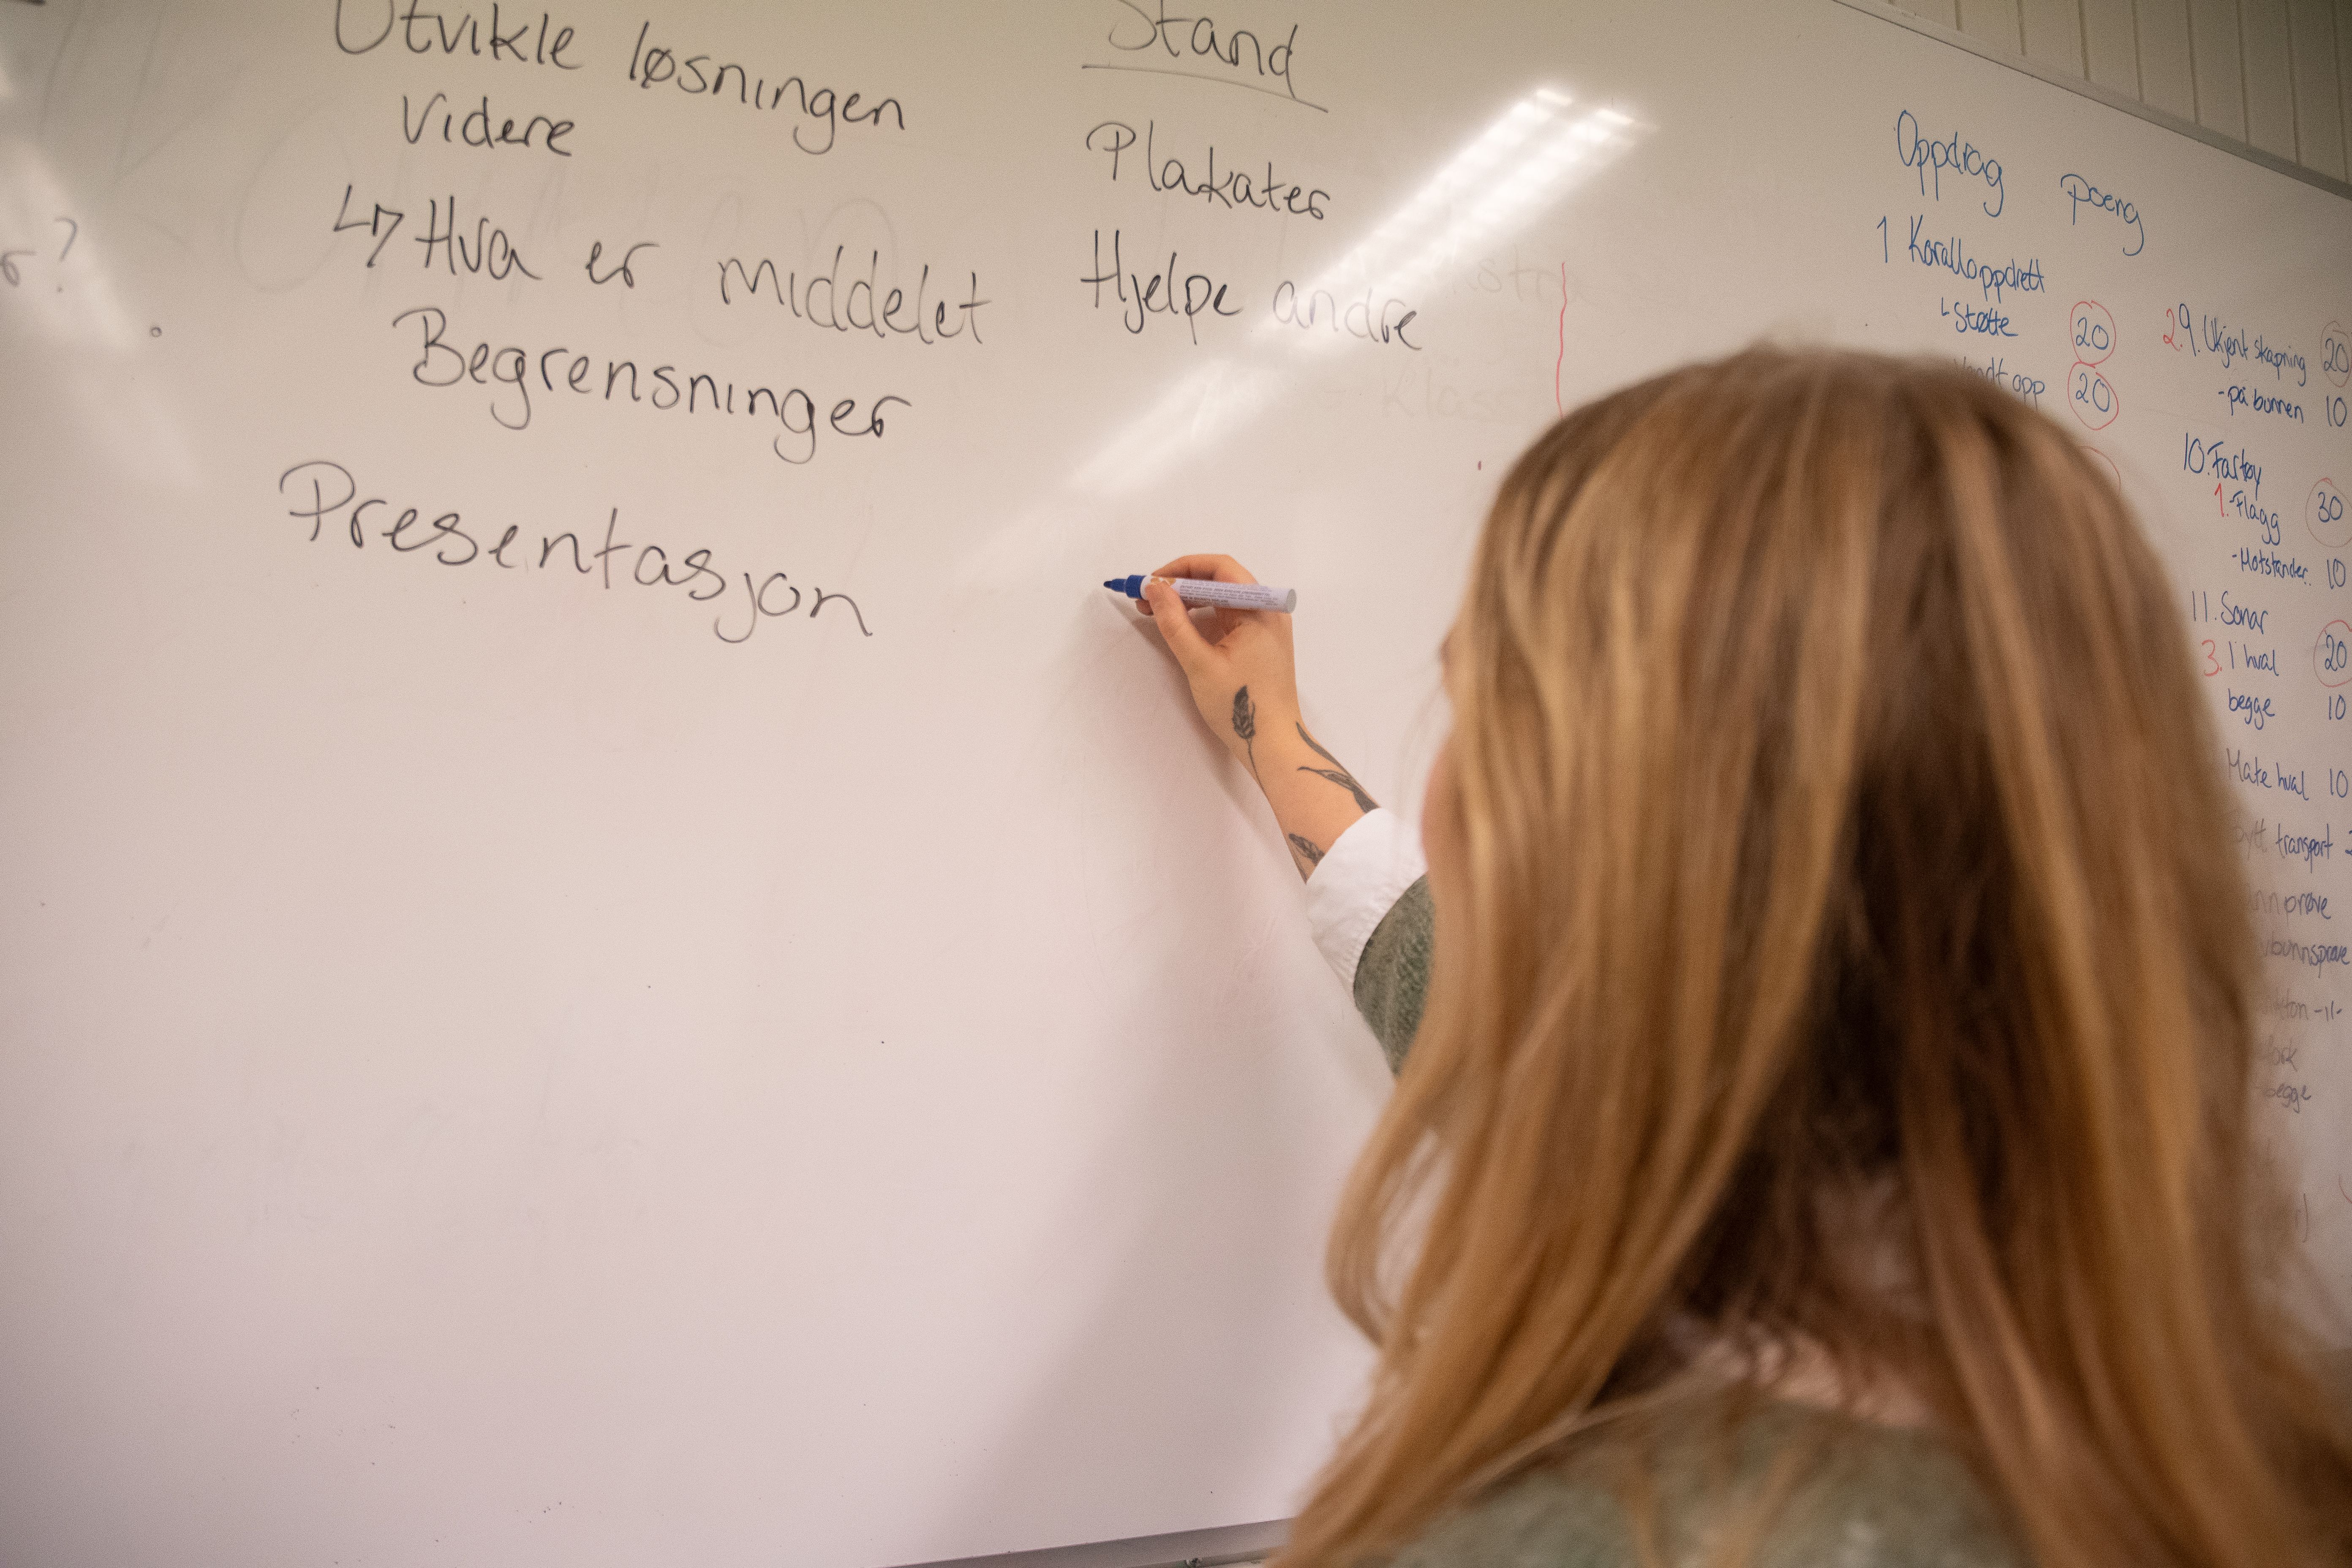 Utvikle løsningen
Videre
↳ Hva er middelet
Begrensninger
Presentasjon
Stand
Plakater
Hjelpe andre
Oppdrag poeng
1 Koralloppdrett
Støtte 20
opp 20
2. 9. Ukjent skapning 20
- på bunnen 10
10. Fartøy
1. - Flagg 30
- Motstander. 10
11. Sonar
3. 1 hval 20
begge 10
Mate hval 10
transport
prøve
begge